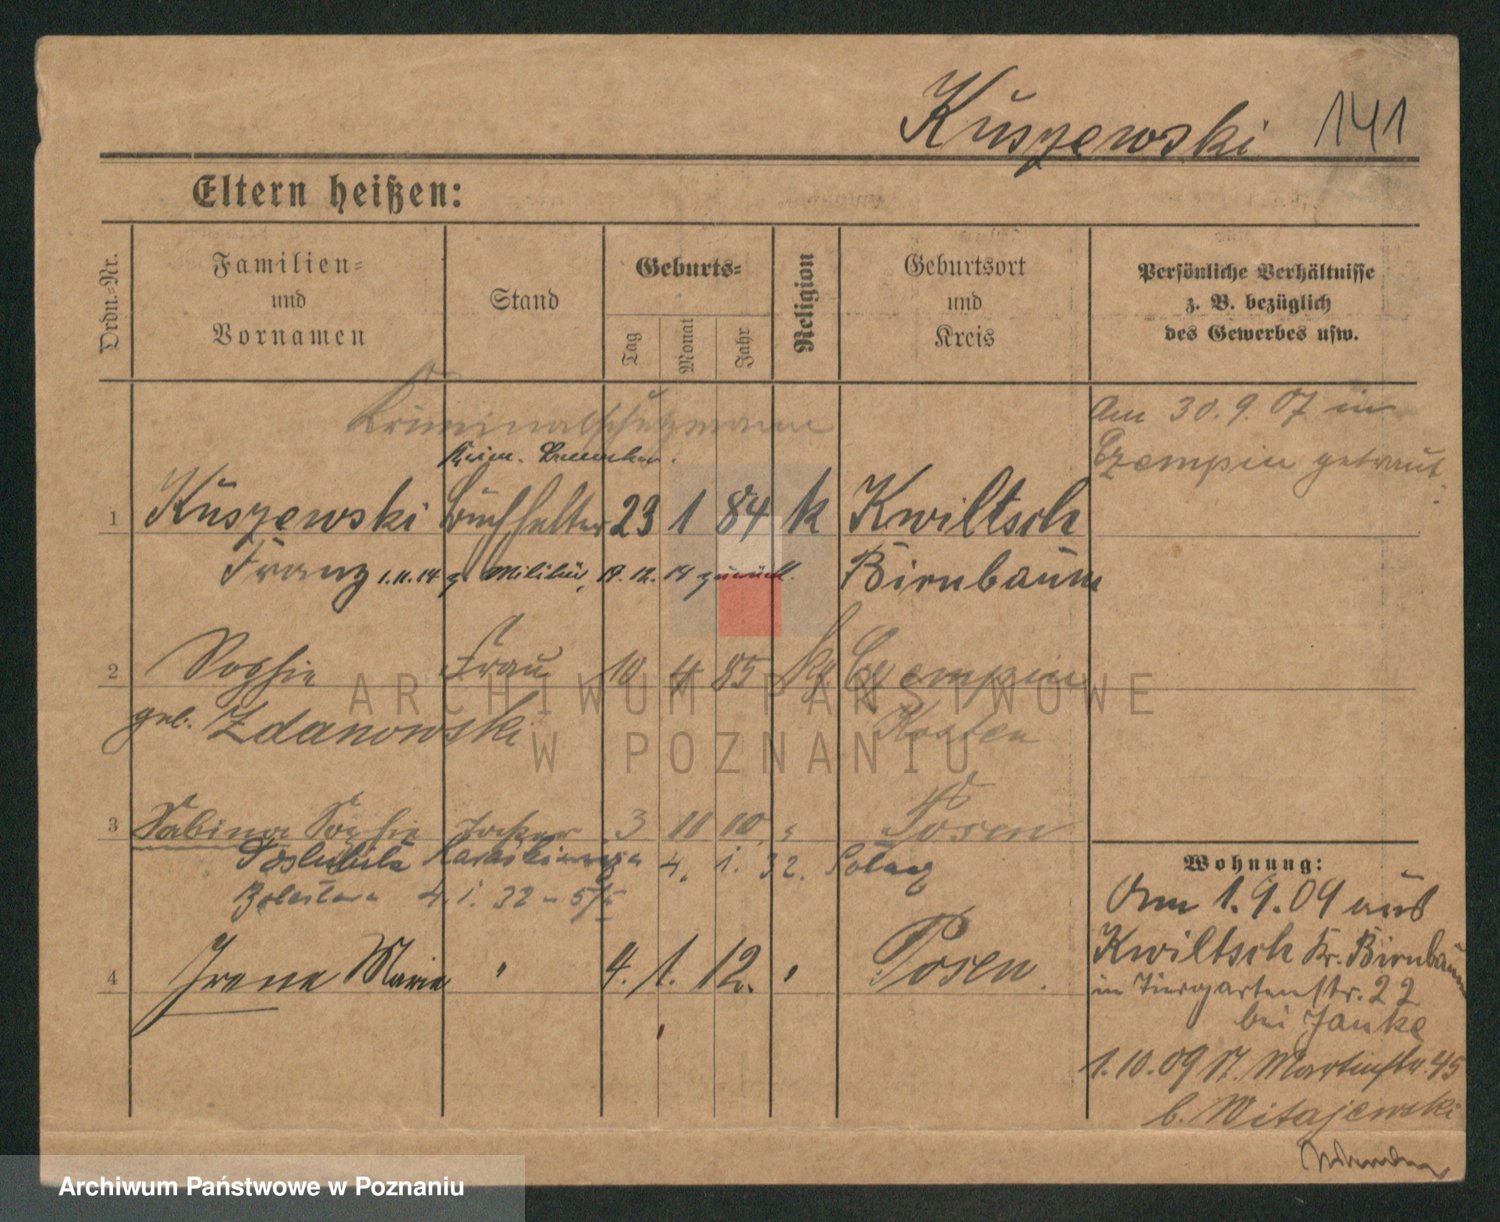 Kuszewski 141
Eltern heißen:
Ordn.-Nr.
Familien-
und
Vornamen
Stand
Geburts-
Tag
Monat
Jahr
Religion
Geburtsort
und
Kreis
Persönliche Verhältnisse
z. B. bezüglich
des Gewerbes usw.
Kriminalschutzmann
Am 30.9.07 in
Czempin getraut.
1 Kuszewski Buchhalter 23 1 84 k Kwiltsch
Franz 1.11.14 z. Militär, 19.12.14 zurück. Birnbaum
2 Sophie Frau 10 4 85 kg Czempin
geb. Zdanowski Kosten
3 Sabina Sophie Tochter 3 11 10 " Posen
4. 1. 32.
4. 1. 32
4 Irene Marie " 4. 1. 12. " Posen.
Wohnung:
Am 1.9.09 aus
Kwiltsch Kr. Birnbaum
in Tiergartenstr. 22
bei Janke
1.10.09 St. Martinstr. 45
b. Witajewski
ARCHIWUM PAŃSTWOWE
W POZNANIU
Archiwum Państwowe w Poznaniu